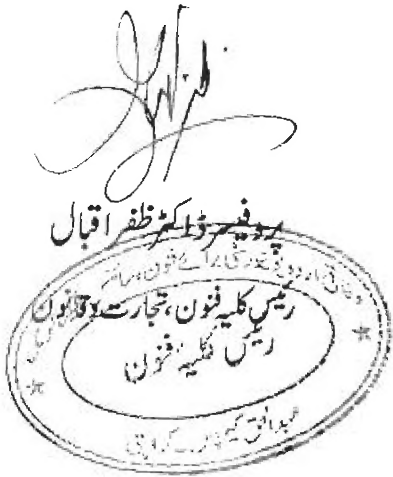 پروفیسر ڈاکٹر ظفر اقبال
وفاقی اردو یونیورسٹی برائے فنون، سائنس
رئیس کلیہ فنون، تجارت و قانون
رئیس کلیہ فنون
عبدالحق کیمپس کراچی